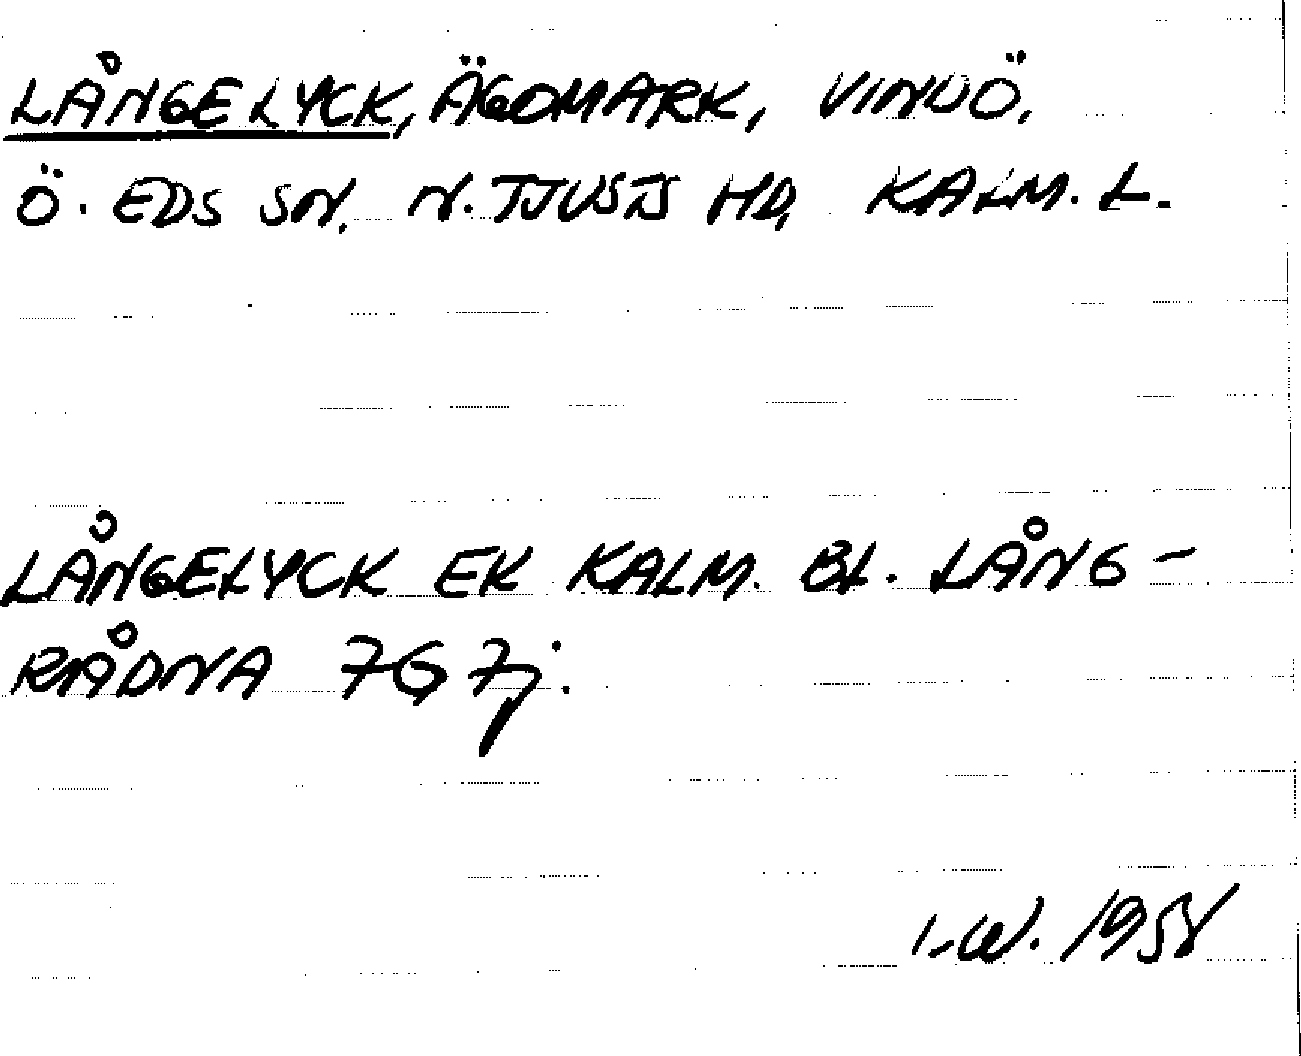 LÅNGELYCK, ÄGOMARK, VINÖ,
Ö. EDS SN. N. TJUSTS HD, KALM. L.
LÅNGELYCK EK KALM. BL. LÅNG-
RÅDNA 7G 7j.
I.W. 1958